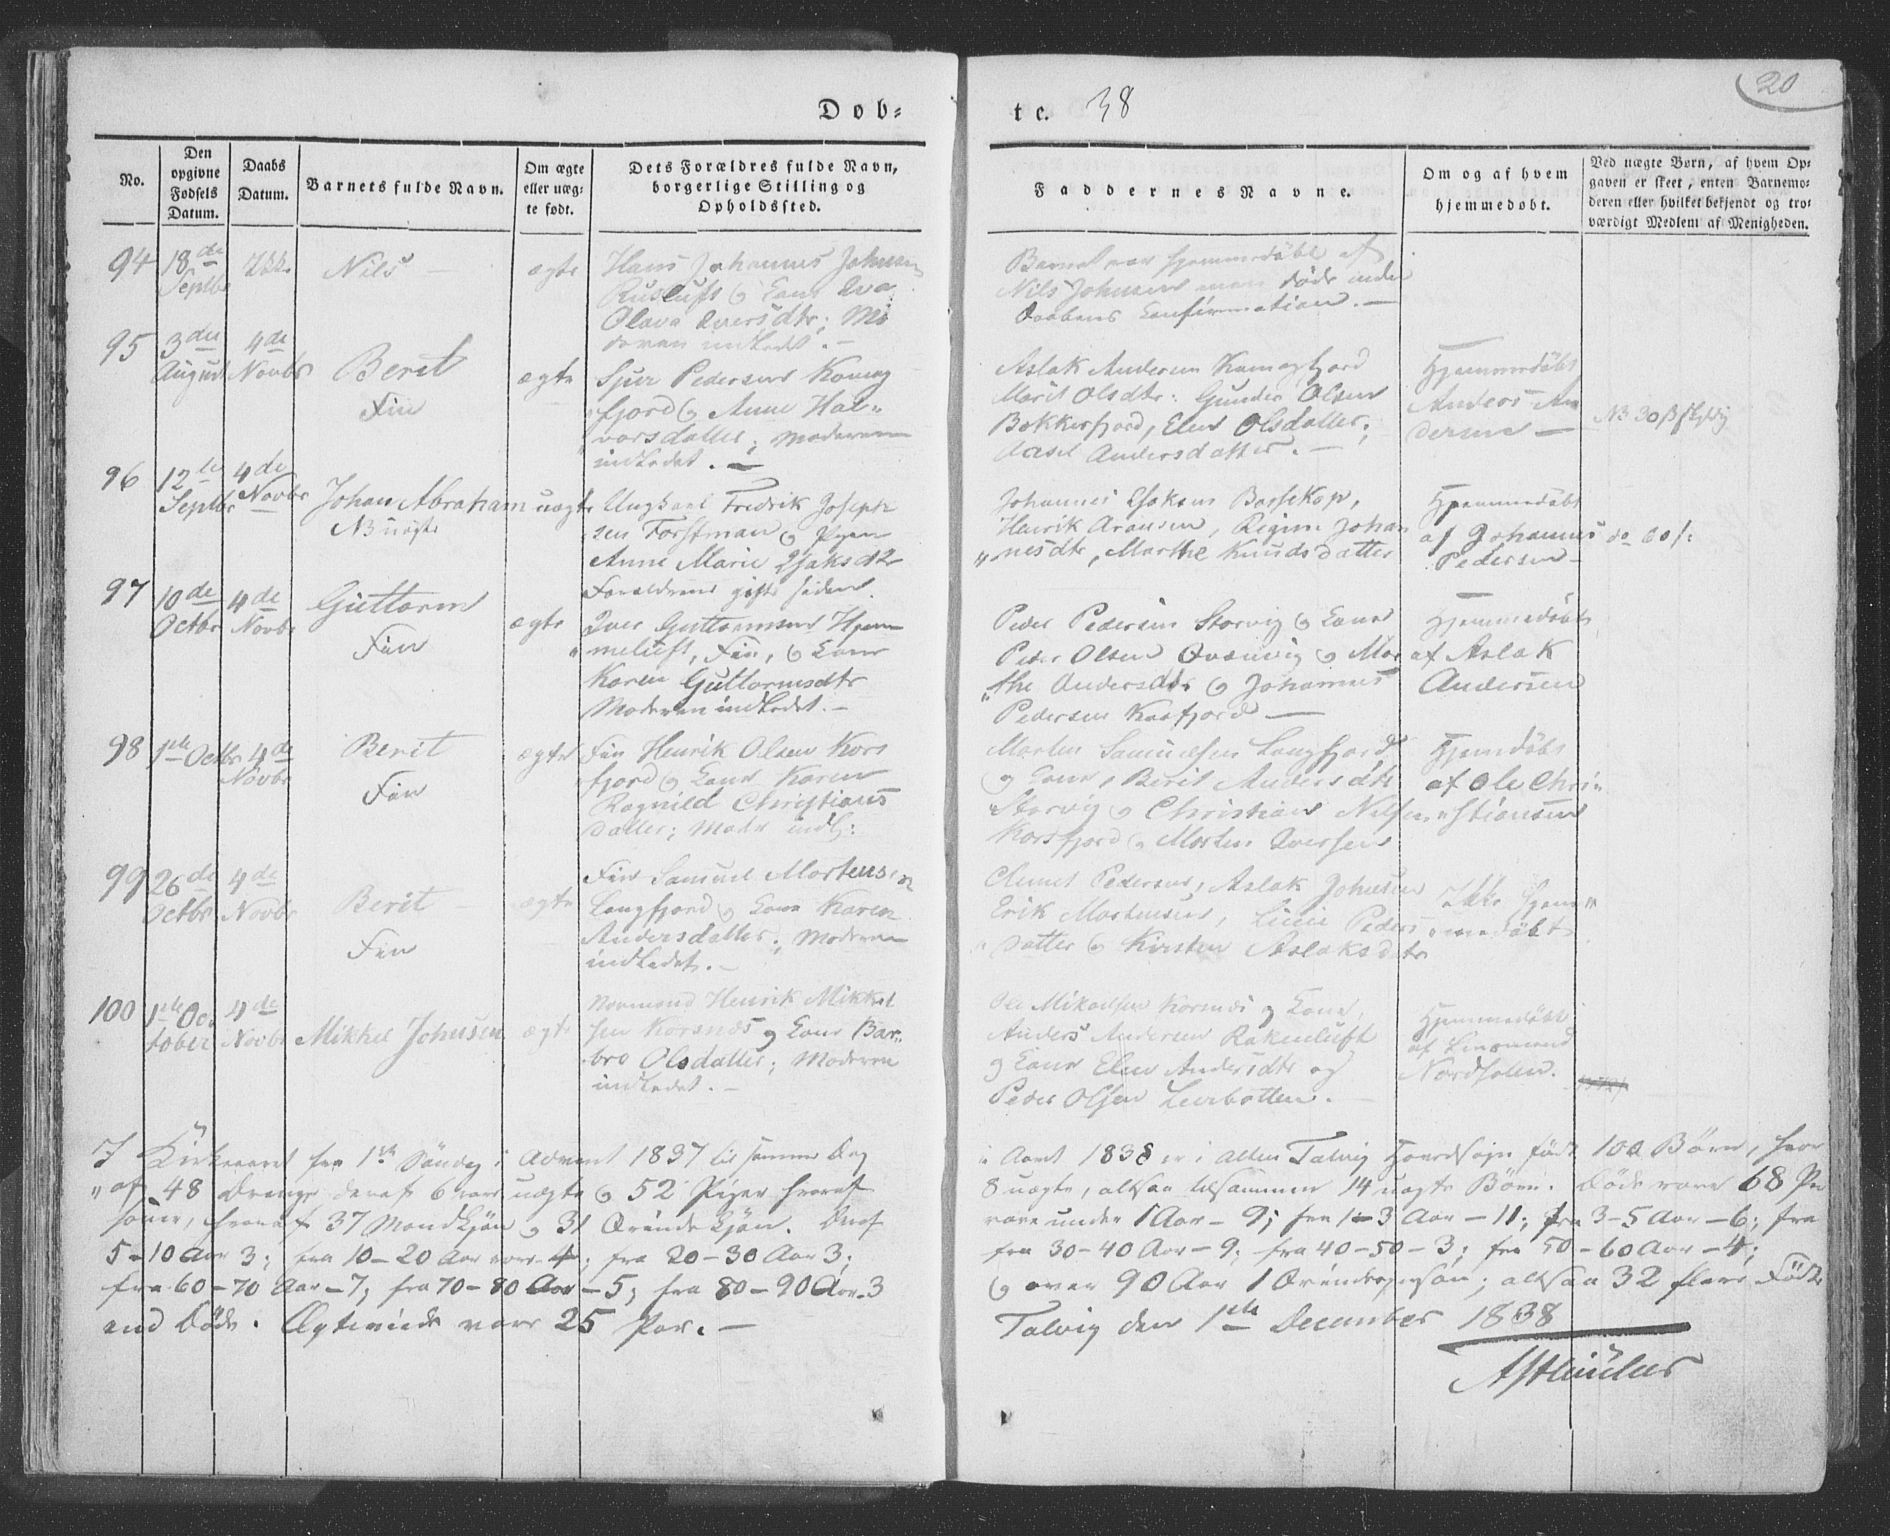 20
Dob=
te. 38
No.
Den opgivne Fødsels Datum.
Daabs Datum.
Barnets fulde Navn.
Om ægte eller uæg- te født.
Dets Forældres fulde Navn, borgerlige Stilling og Opholdssted.
Faddernes Navne.
Om og af hvem hjemmedøbt.
Ved uægte Børn, af hvem Op- gaven er skeet, enten Barnemo- deren eller hvilket bekjendt og tro- værdigt Medlem af Menigheden.
94
18de Septbr
Nils
ægte
Hans Johannes Johnsen
Rusluft og Kone Eva
Olava Iversdtr; Mo
deren indledet. —
Barnet var hjemmedøbt af
Nils Johnsen men døde inden
Daabens Confirmation. —
95
3die August
4de Novbr
Berit
Fin
ægte
Sjur Pedersen Komag
fjord og Anne Hal-
vorsdatter; Moderen
indledet. —
Aslak Andersen Komagfjord
Marit Olsdtr. Gunder Olsen
Bekkerfjord, Elen Olsdatter;
Aasel Andersdatter. —
Hjemmedøbt
Anders An
dersen —
NB 30 ß skyldig
96
12te Septbr
4de Novbr
Johan Abraham
NB uægte
uægte
Ungkarl Fredrik Joseph
sen Forstman og Pigen
Anne Marie Isaksdtr
Forældrene gift siden.
Johannes Isaksen Bossekop,
Henrik Aronsen, Regine Johan
nesdtr, Marthe Knudsdatter
Hjemmedøbt
af Johannes
Pedersen —
do 60 ß
97
10de Octbr
4de Novbr
Guttorm
Fin
ægte
Iver Guttormsen Hjem
meluft, Fin, og Kone
Karen Guttormsdtr
Moderen indledet. —
Peder Pedersen Storvig og Kone
Peder Olsen Qvænvig og Mar
the Andersdtr og Johannes
Pedersen Kaafjord —
Hjemmedøbt
af Aslak
Andersen
98
1ste Octbr
4de Novbr
Berit
Fin
ægte
Fin Henrik Olsen Kors
fjord og Kone Karen
Ragnild Christians
datter; Modr indl:
Morten Samuelsen Langfjord
og Kone, Berit Andersdtr
Storvig og Christian Nilsen
Korsfjord og Morten Iversen
Hjemdøbt
af Ole Chri-
stiansen
99
26de Octbr
4de Novbr
Berit
Fin
ægte
Fin Samuel Mortensen
Langfjord og Kone Karen
Andersdatter; Moderen
indledet. —
Clemet Pedersen, Aslak Johnsen
Erik Mortensen, Lucie Peders
datter og Kirsten Aslaksdtr
Ikke hjem-
medøbt
100
1ste October
4de Novbr
Mikkel Johnsen
ægte
Normand Henrik Mikkel
sen Korsnæs og Kone Bar-
bro Olsdatter; Moderen
indledet. —
Ole Mikaelsen Korsnæs og Kone,
Anders Andersen Rakenluft
og Kone Elen Andersdtr og
Peder Olsen Leerbotten. —
Hjemmedøbt
af
Nordholm.
I Kirkeaaret fra 1ste Søndag i Advent 1837 til samme Dag
i Aaret 1838 er i Alten Talvig Hovedsogn født 100 Børn, hvor
af 48 Drenge deraf 6 vare uægte og 52 Piger hvoraf
8 uægte, altsaa tilsammen 14 uægte Børn. Døde vare 68 Per
soner, hvoraf 37 Mandkjøn og 31 Qvindekjøn. Deraf
vare under 1 Aar — 9; fra 1-3 Aar — 11; fra 3-5 Aar — 6; fra
5-10 Aar 3; fra 10-20 Aar vare 4; fra 20-30 Aar 3;
fra 30-40 Aar — 9; fra 40-50 — 3; fra 50-60 Aar — 4;
fra 60-70 Aar — 7; fra 70-80 Aar — 5; fra 80-90 Aar — 3
og over 90 Aar 1 Qvindeperson; altsaa 32 flere Fødte
end Døde. Ægteviede vare 25 Par. —
Talvig den 1ste December 1838